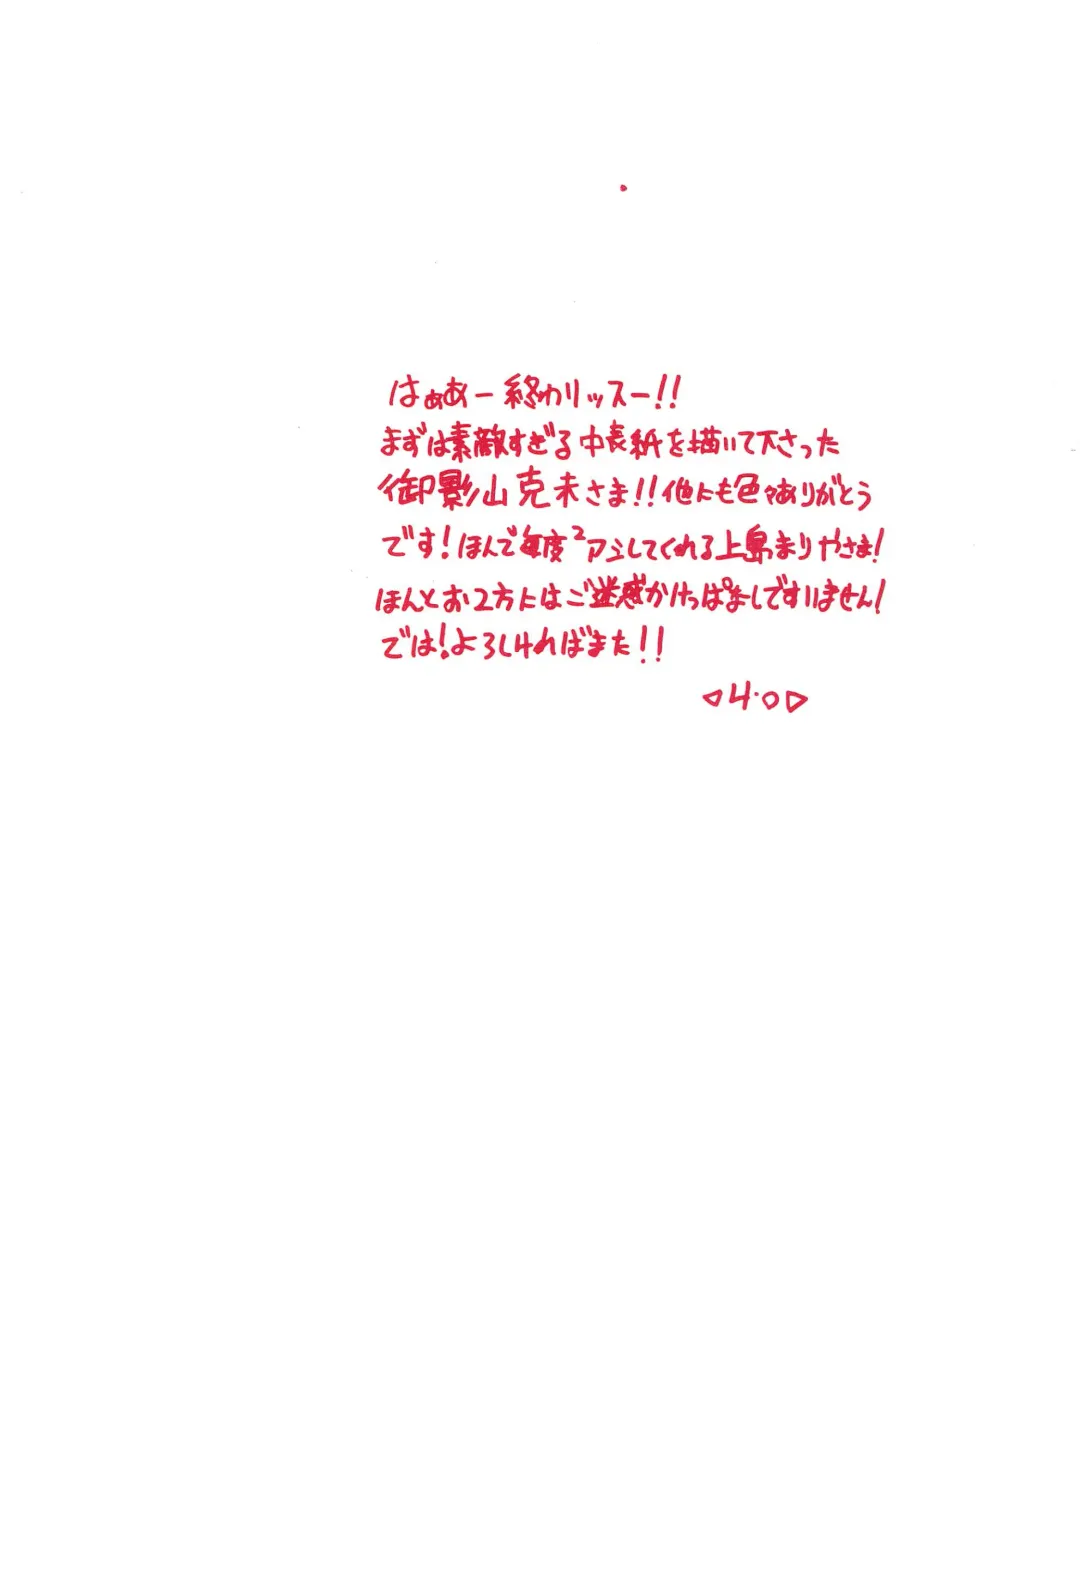 はぁあー終わリッスー!!
まずは素敵すぎる中表紙を描いて下さった
御影山克未さま!!他にも色々ありがとう
です!ほんで毎度²アシしてくれる上島まりやさま!
ほんとお2方にはご迷惑かけっぱなしですいません!
では!よろしければまた!!
◁4·0▷